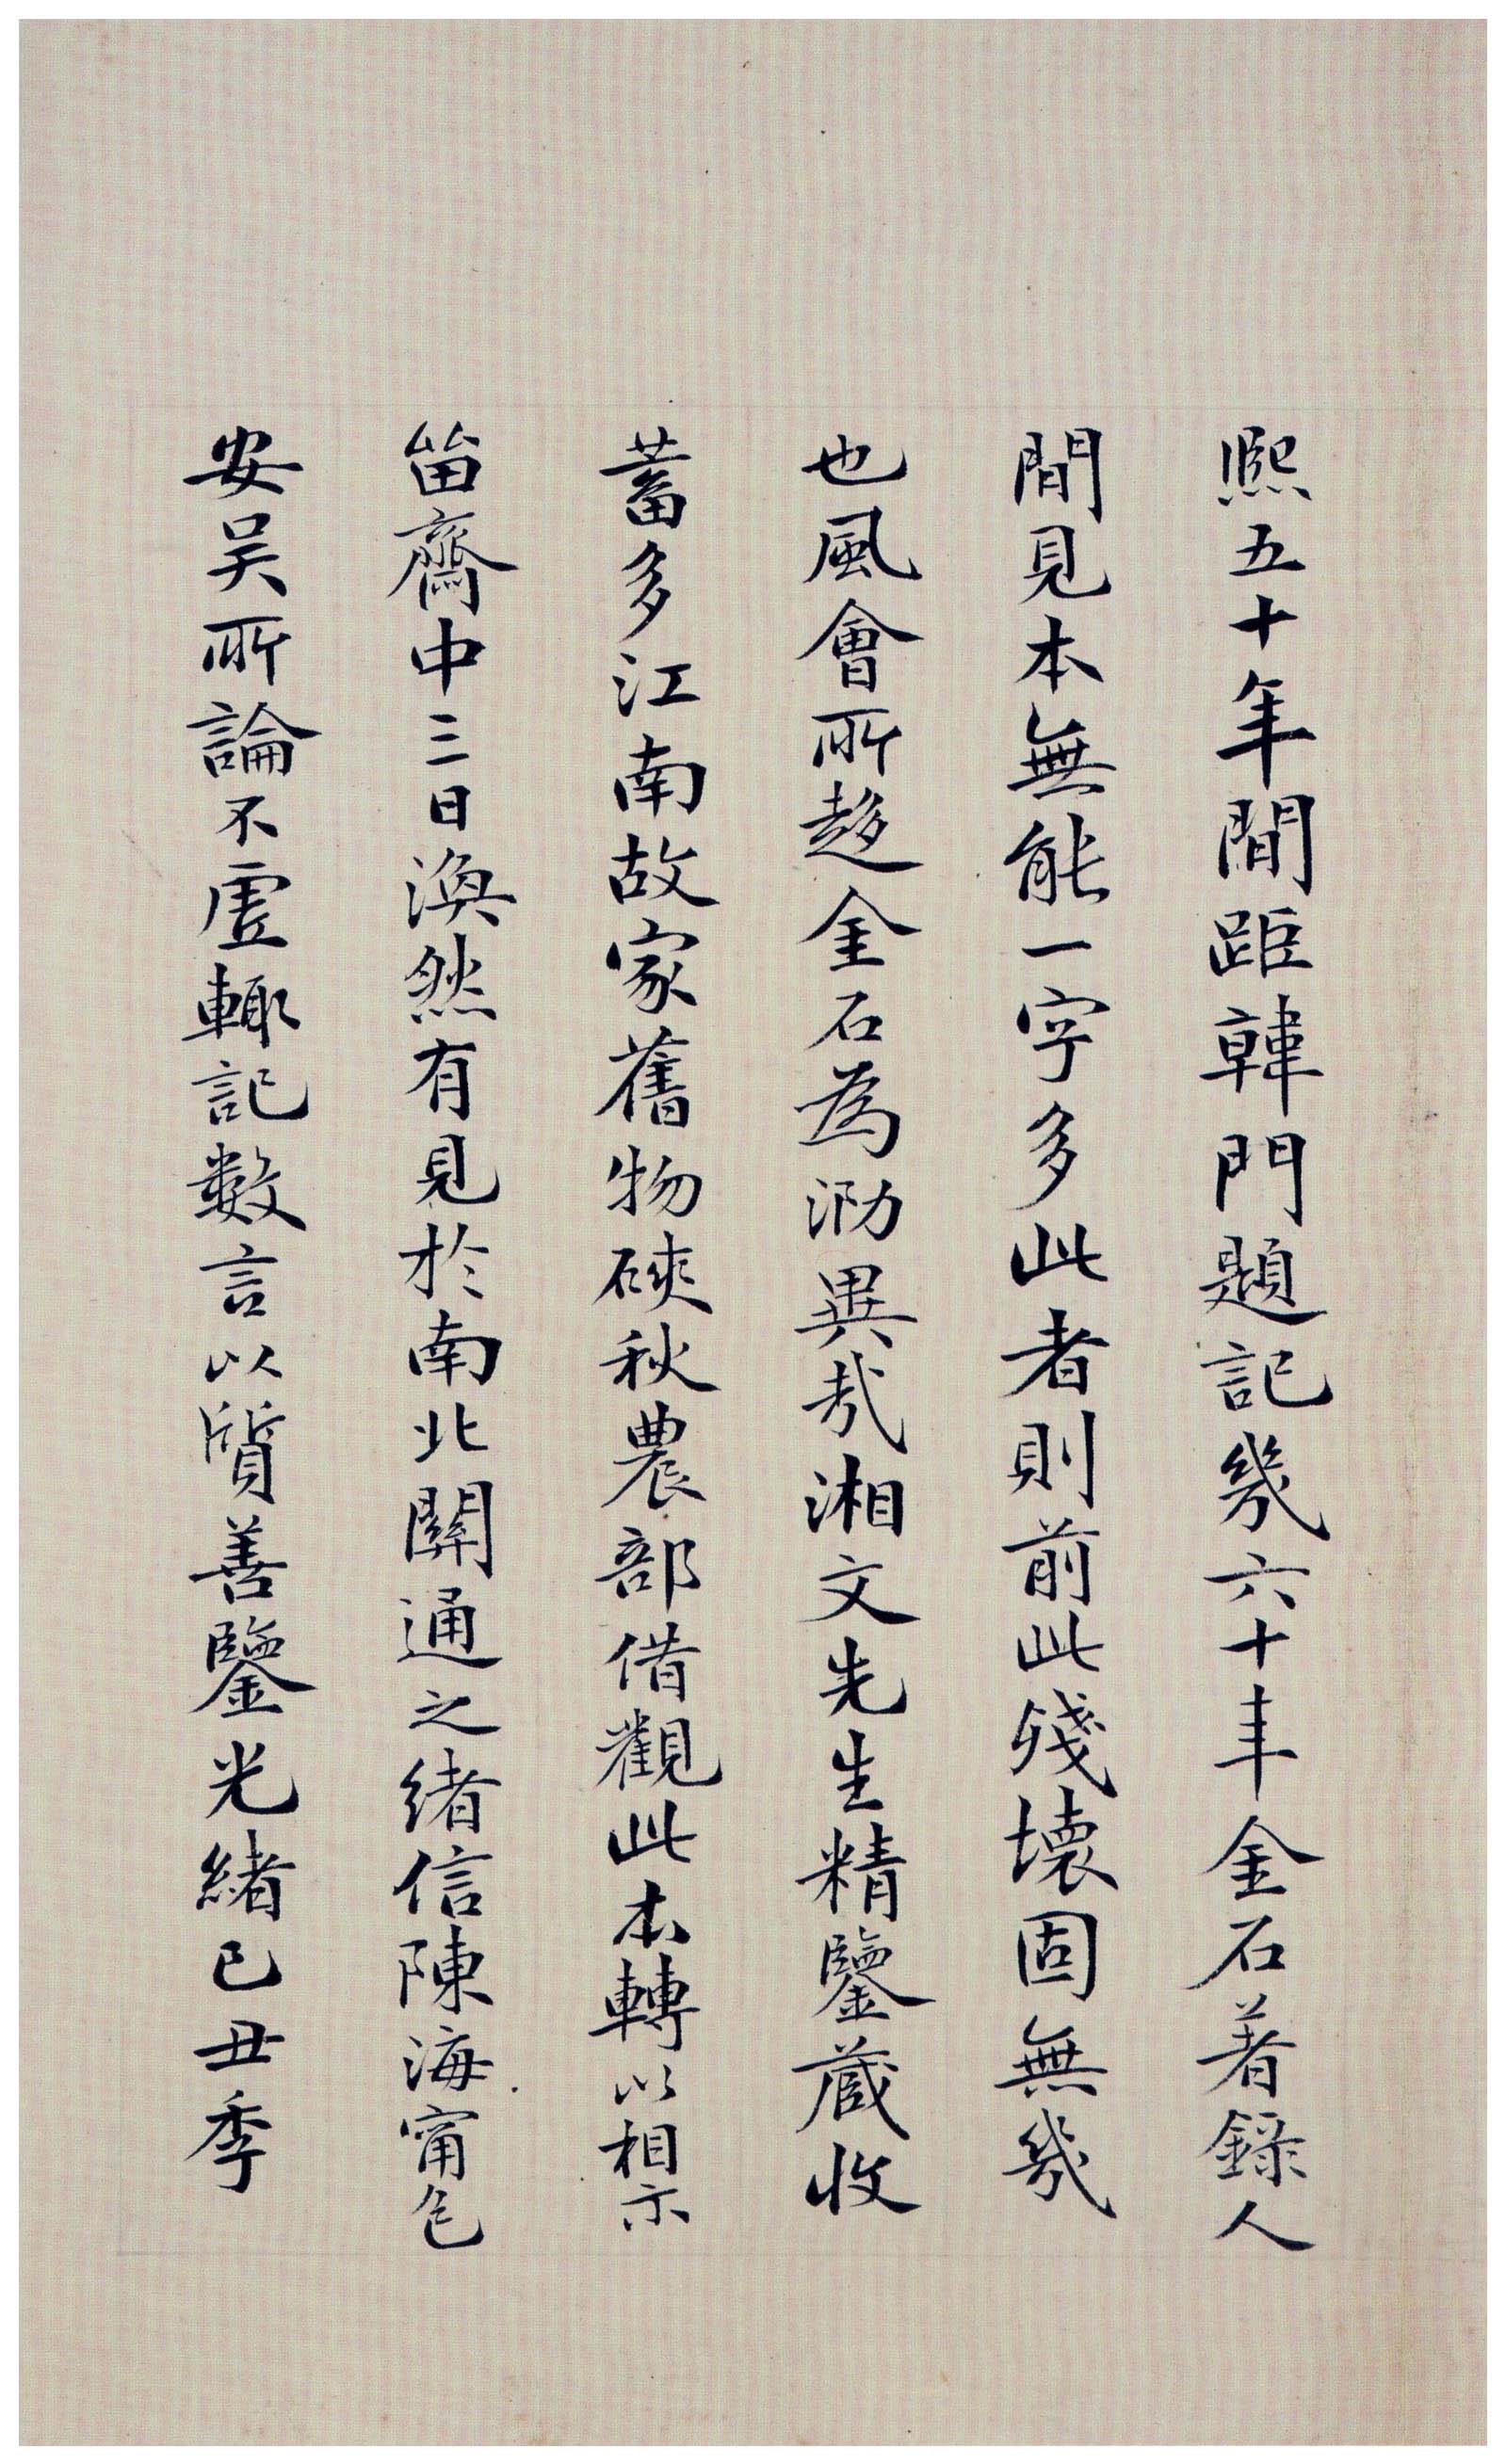 熙五十年間距韓門題記幾六十年金石著錄人
間見本無能一字多此者則前此殘壞固無幾
也風會所趍金石為泐異哉湘文先生精鑒蔵收
蓄多江南故家舊物硤秋農部借觀此本轉以相示
留齋中三日渙然有見於南北關通之緒信陳海甯包
安吴所論不虚輙記数言以質善鑒光緒已丑季